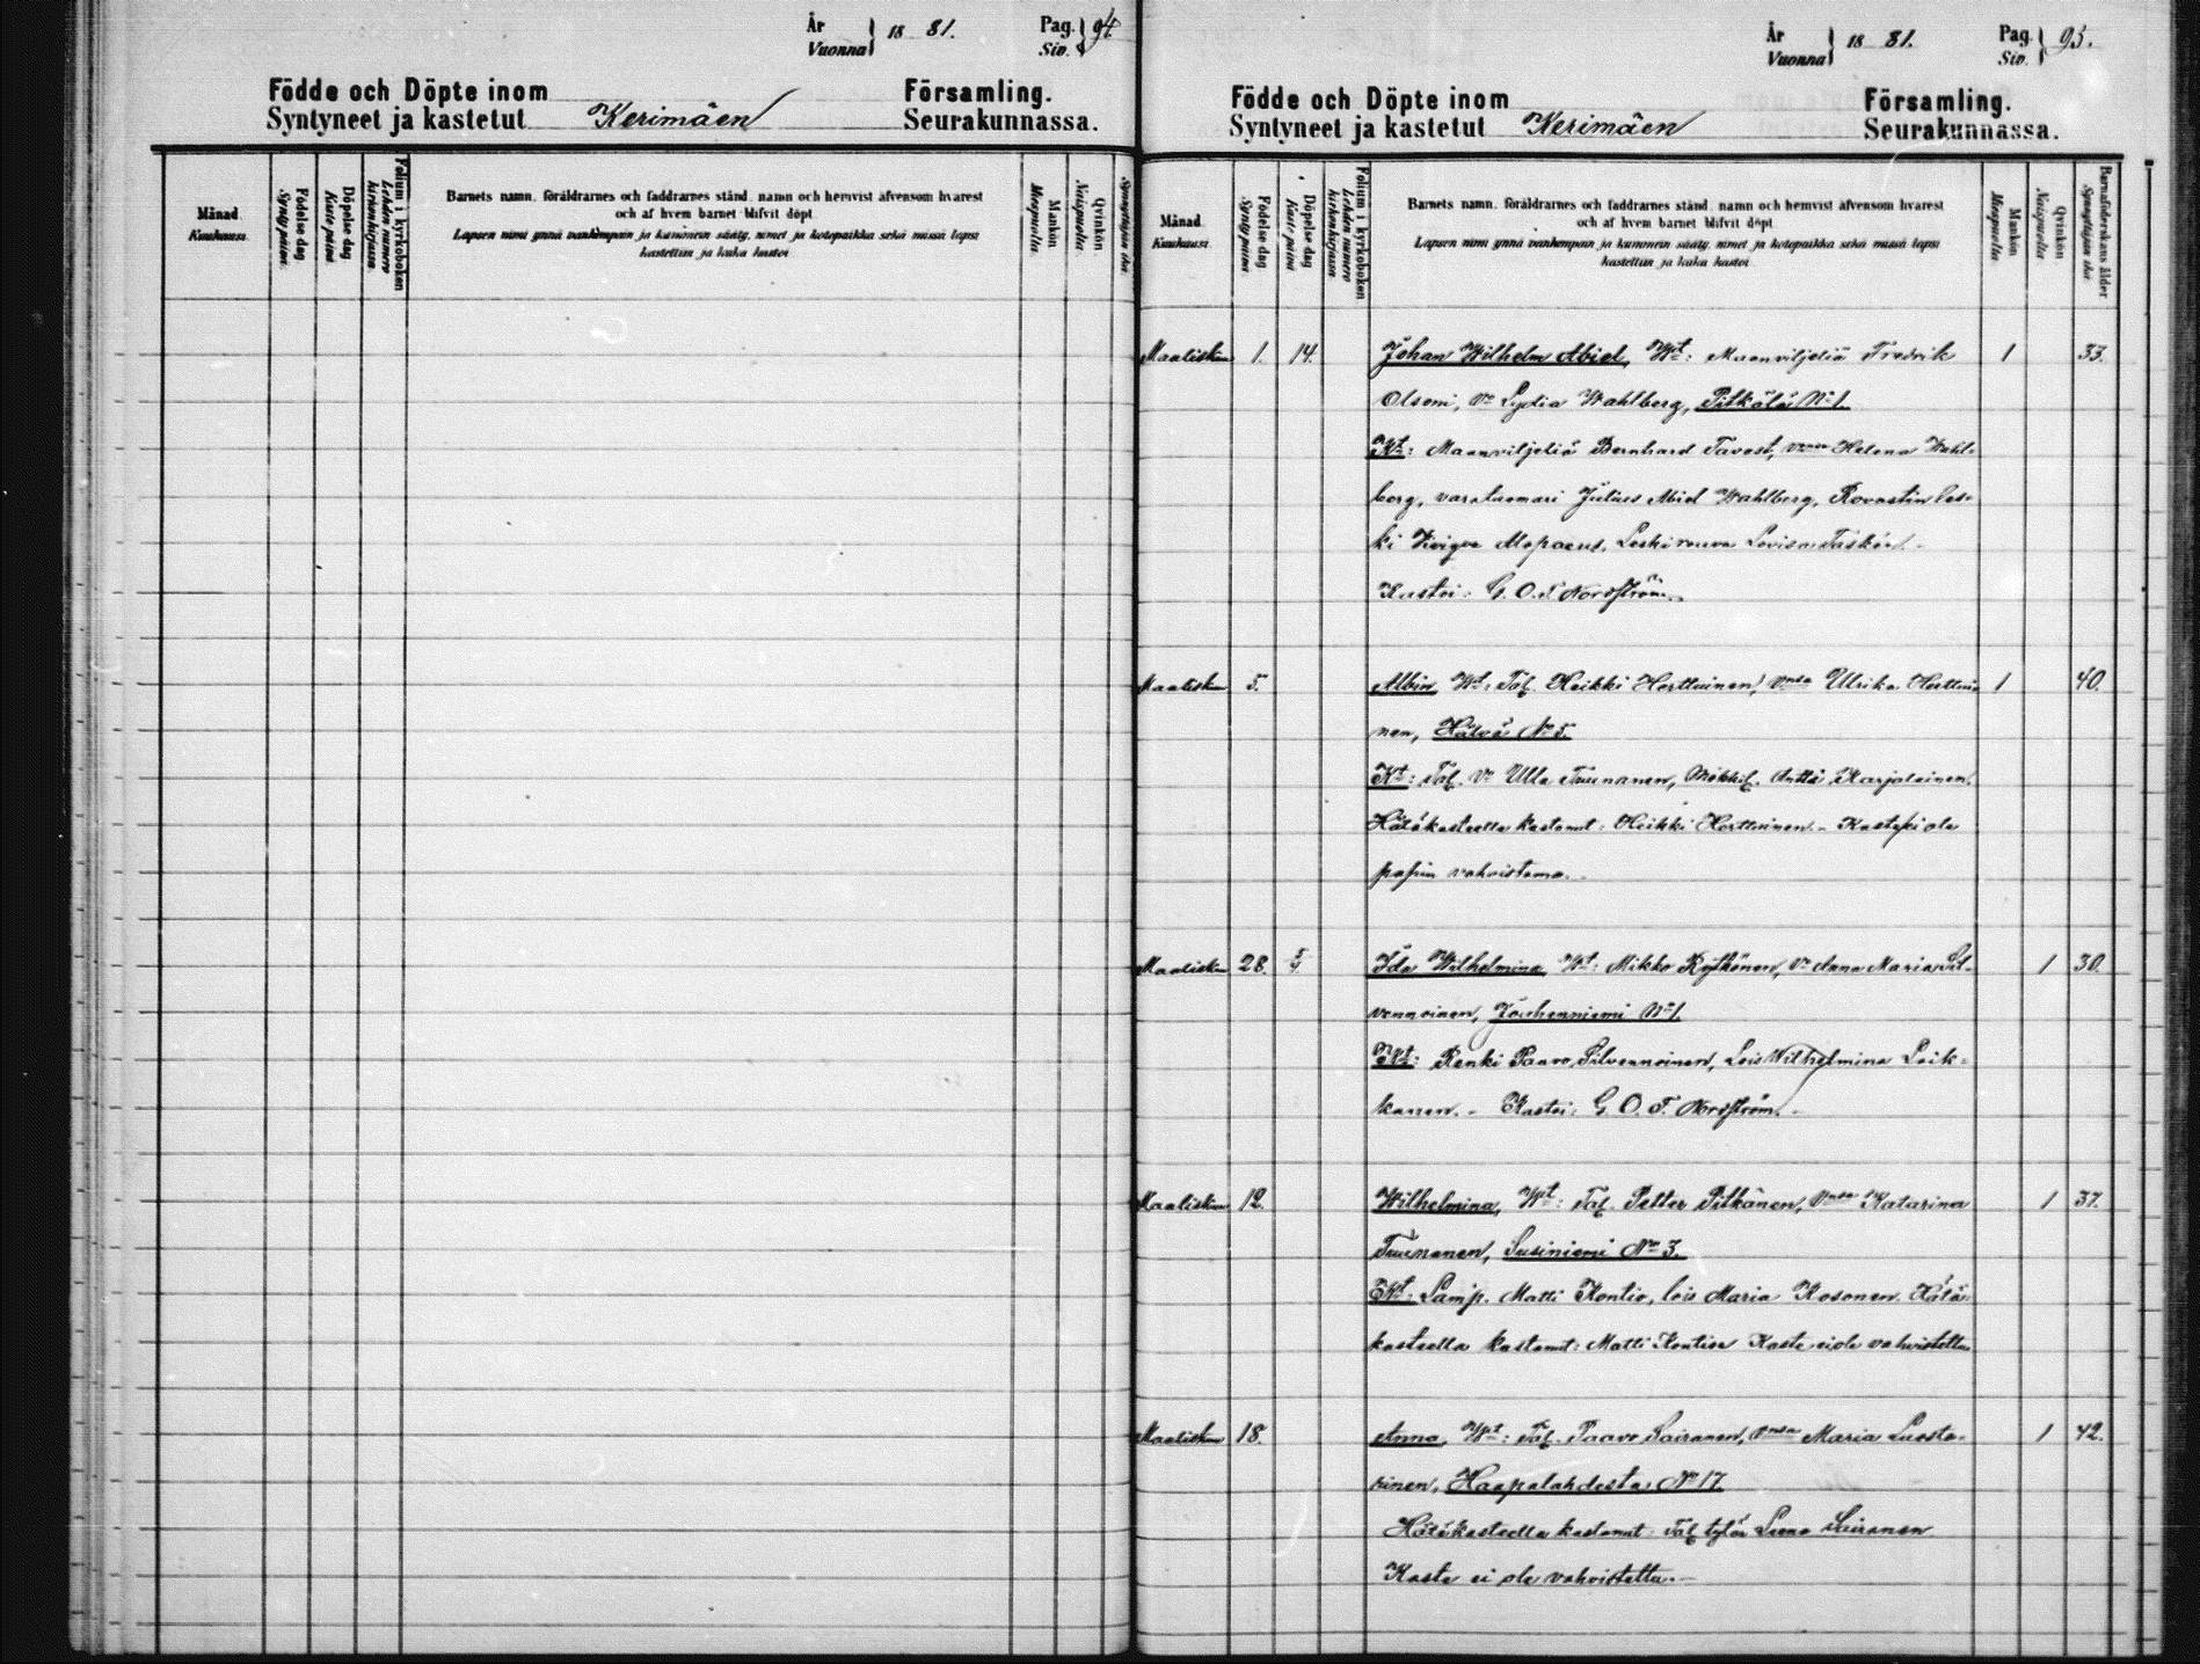 År
Vuonna 18 81.
Pag.
Siv. 94.
Födde och Döpte inom Församling.
Syntyneet ja kastetut Kerimäen Seurakunnassa.
Månad
Kuukausi.
Födelse dag
Synty päivä.
Döpelse dag
Kaste päivä
Folium i kyrkoboken
Lehden numero kirkonkirjassa
Barnets namn, föräldrarnes och faddrarnes stånd, namn och hemvist äfvensom hvarest
och af hvem barnet blifvit döpt
Lapsen nimi ynnä vanhempain ja kummein sääty, nimet ja kotopaikka sekä missä lapsi
kastettiin ja kuka kastoi
Mankön
Miespuolta
Qvinkön
Naispuolta
Synnyttäjän ikä
År
Vuonna 18 81.
Pag.
Siv. 95.
Födde och Döpte inom Församling.
Syntyneet ja kastetut Kerimäen Seurakunnassa.
Månad
Kuukausi.
Födelse dag
Synty päivä
Döpelse dag
Kaste päivä
Folium i kyrkoboken
Lehden numero kirkonkirjassa.
Barnets namn, föräldrarnes och faddrarnes stånd, namn och hemvist äfvensom hvarest
och af hvem barnet blifvit döpt
Lapsen nimi ynnä vanhempain ja kummein sääty, nimet ja kotopaikka sekä missä lapsi
kastettiin ja kuka kastoi
Mankön
Miespuolta
Qvinkön
Naispuolta
Barnaföderskans ålder
Synnyttäjän ikä
Maalisk. 1. 14. Johan Wilhelm Abiel, Wt: Maanviljeliä Fredrik 1 33.
Olsoni, Vo Lydia Wahlberg, Pitkälä No 1.
Kt: Maanviljeliä Bernhard Tavast, Helena Wahl-
berg, varatuomari Julius Abiel Wahlberg, Rovastin les-
ki Alopaeus, Leski rouva Lovisa
Kastoi: G. O. F. Nordström.
Maalisk. 5. Albin Wt: Tal. Heikki Herttuinen, Vnsa Ulrika Herttui- 1 40.
nen, No 5.
Kt: Tal. Vo Ulla Tuunanen, Antti Karjalainen.
Hätäkasteella kastanut: Heikki Herttuinen. - Kaste ei ole
papin vahvistama.
Maalisk. 28. 5/4 Ida Wilhelmina Wt: Mikko Rytkönen, Vo Anna Maria Sil- 1 30.
vennoinen, Jouhenniemi No 1.
Kt: Renki Paavo Silvennoinen, Lois Wilhelmina Leik-
kanen. - Kastoi: G. O. F. Nordström. -
Maalisk. 12. Wilhelmina, Wt: Tal. Petter Pitkänen, Vnsa Katarina 1 37.
Tuunanen, Susiniemi No 3.
Kt: Lamp. Matti Kontio, lois Maria Kosonen. Hätä-
kasteella kastanut: Matti Kontio Kaste ei ole vahvistettu
Maalisk. 18. Anna, Wt: Tal. Paavo Sairanen, Vnsa Maria Luosta- 1 42.
rinen, Haapalahdesta No 17.
Hätäkasteella kastanut Tal. tytär Leena Sairanen
Kaste ei ole vahvistettu. -